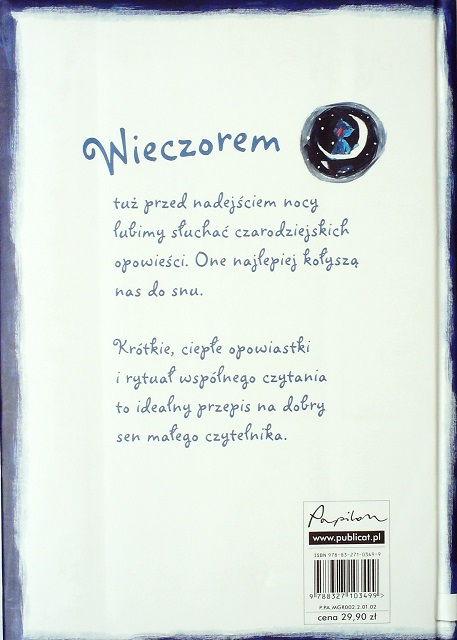 Wieczorem
tuż przed nadejściem nocy
lubimy słuchać czarodziejskich
opowieści. One najlepiej kołyszą
nas do snu.
Krótkie, ciepłe opowiastki
i rytuał wspólnego czytania
to idealny przepis na dobry
sen małego czytelnika.
Papilon
www.publicat.pl
ISBN 978-83-271-0349-9
9 788327 103499 >
P.PA.MGR002.2.01.02
cena 29,90 zł